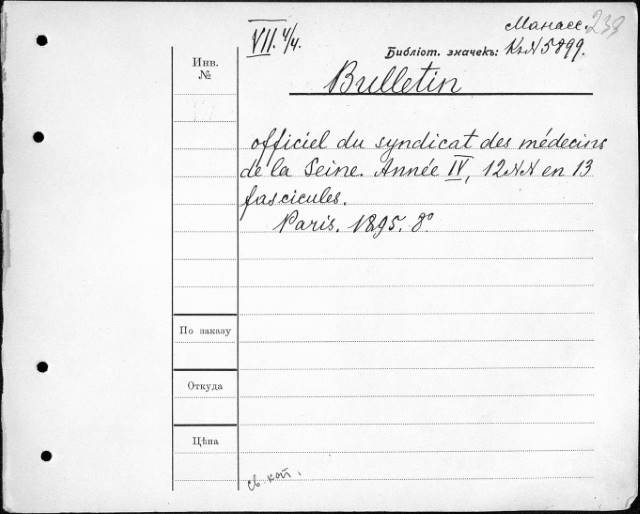 VII. 4/4.
Манасс. 239
Библіот. значекъ: К.N 5899.
Bulletin
Инв.
№
officiel du syndicat des médecins
de la Seine. Année IV, 12NN en 13
fascicules.
Paris. 1895. 8°
По заказу
Откуда
Цѣна
св. кат.